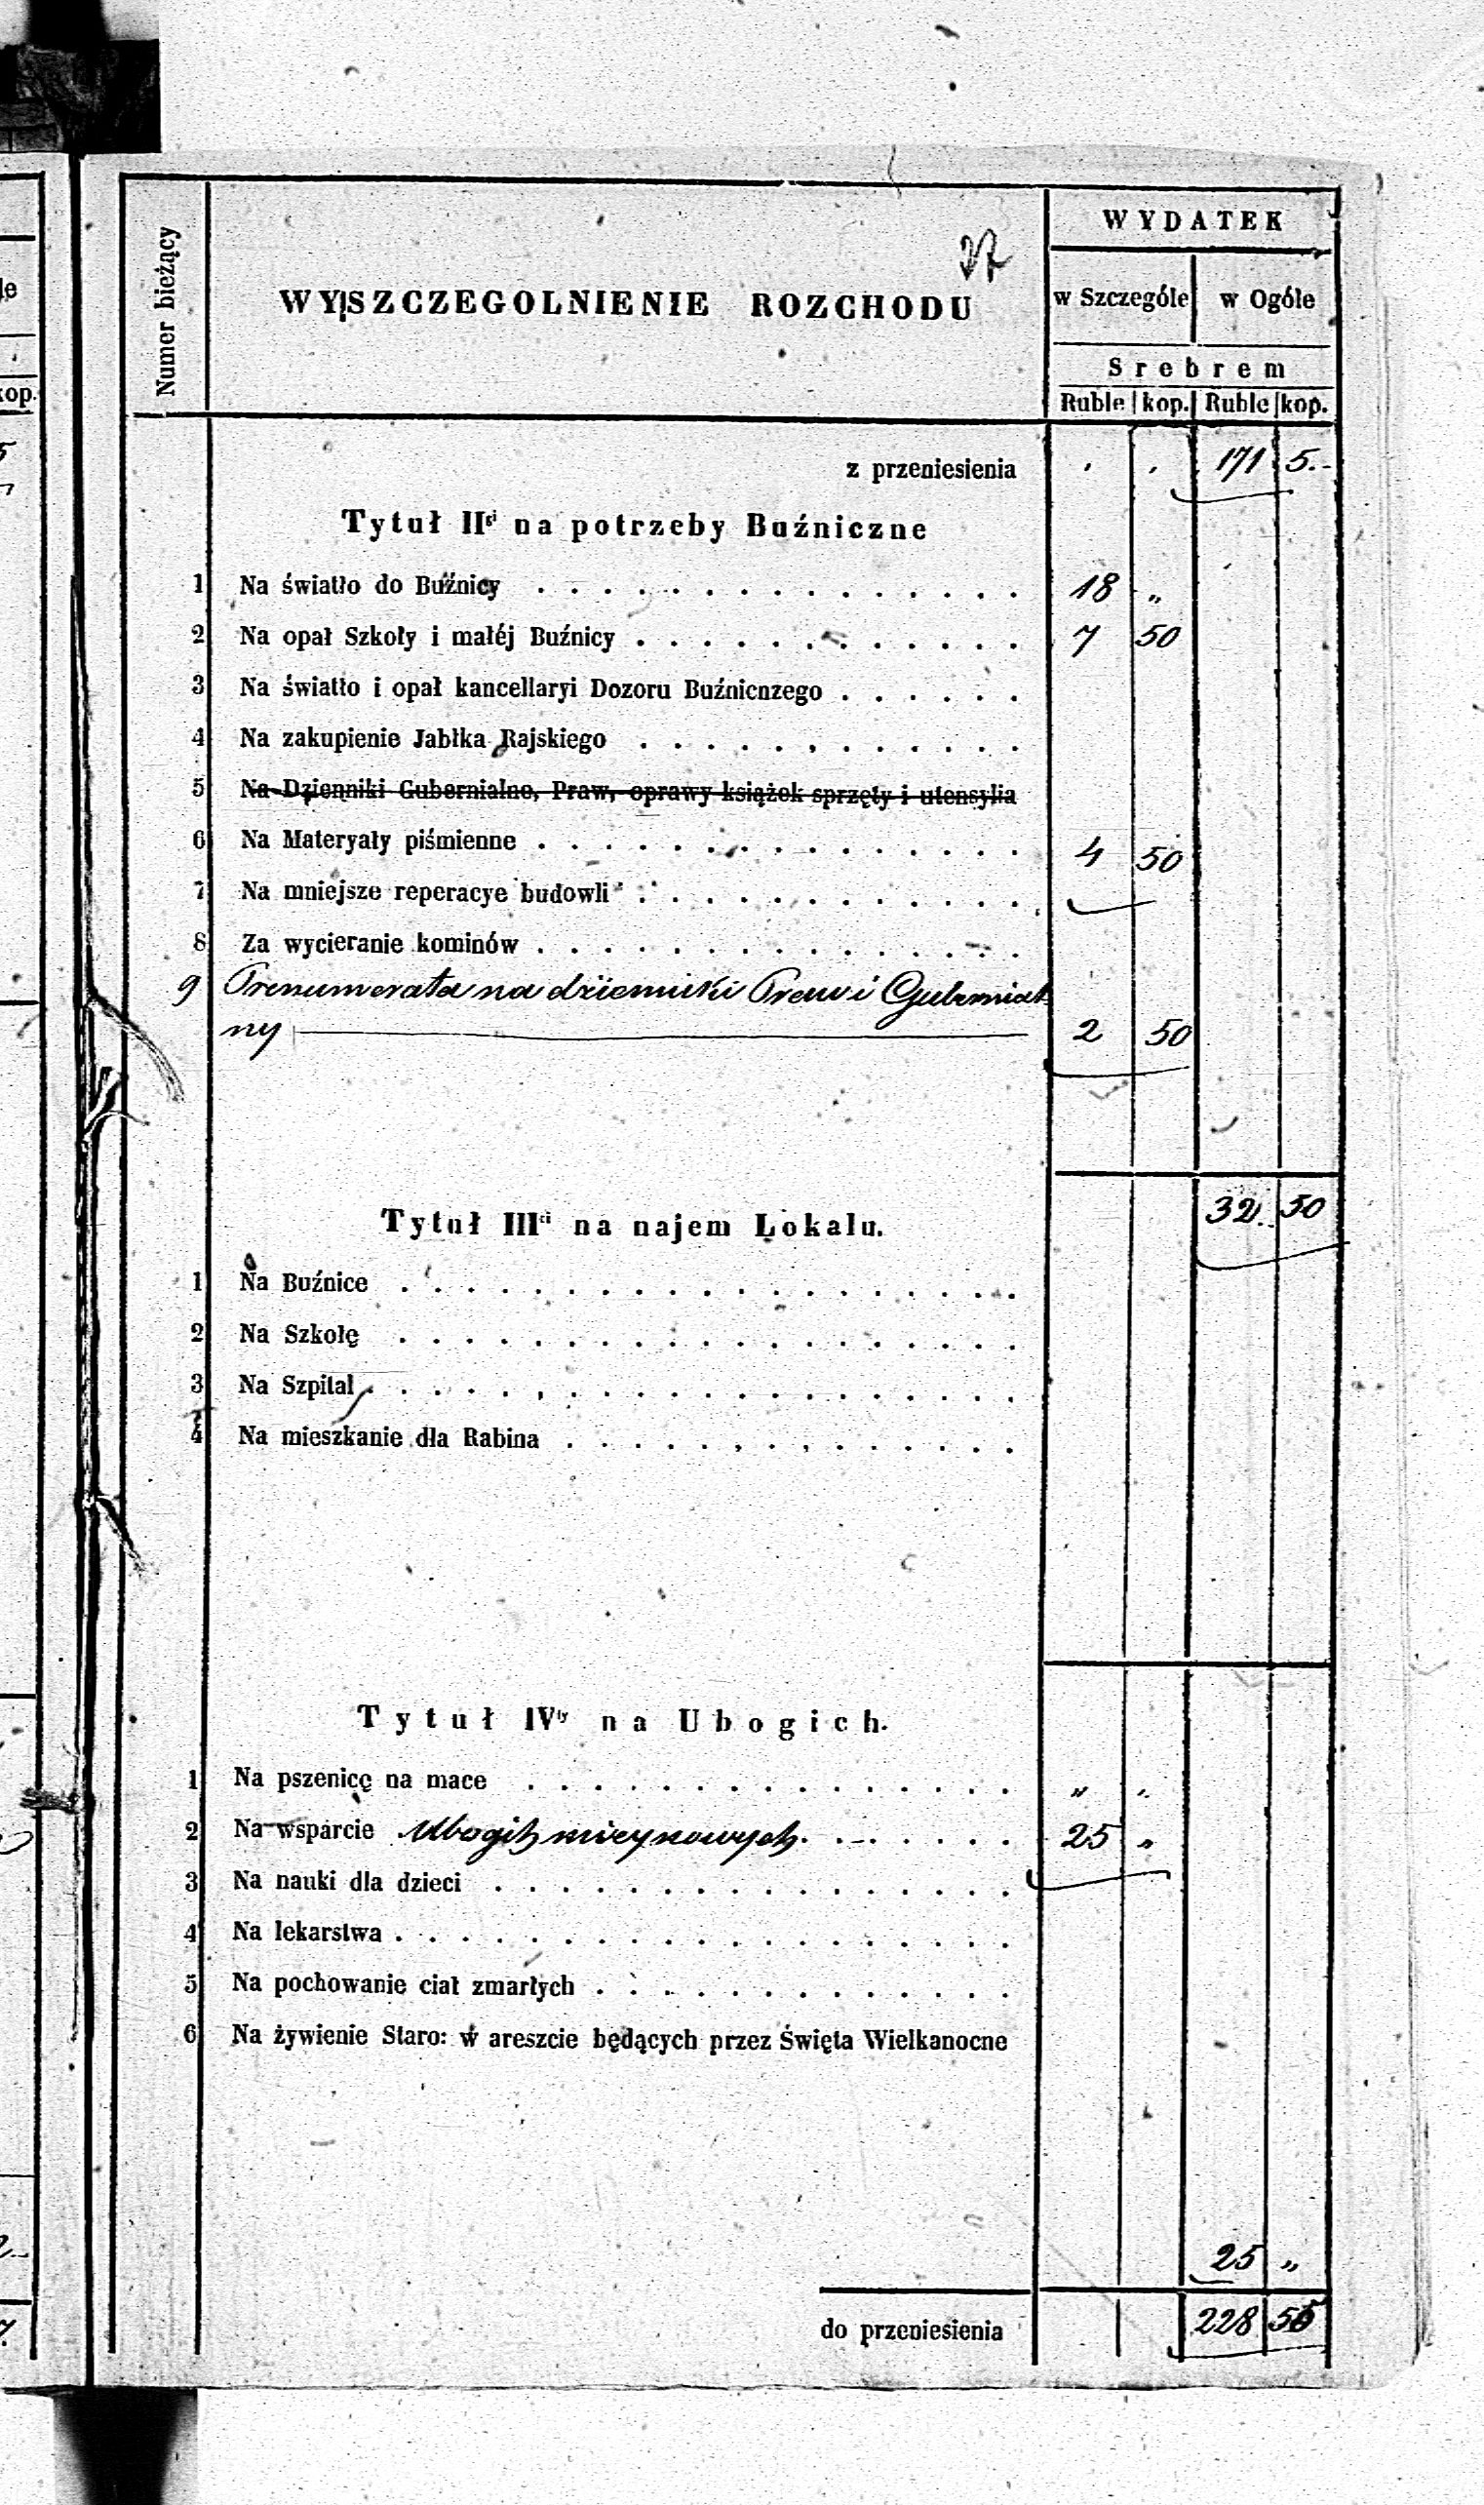 le
kop.
WYDATEK
Numer bieżący
WYSZCZEGOLNIENIE ROZCHODU
w Szczególe w Ogóle
Srebrem
Ruble kop. Ruble kop.
z przeniesienia 171 5.
Tytuł IIgi na potrzeby Buźniczne
1 Na światło do Buźnicy 18 „
2 Na opał Szkoły i małéj Buźnicy 7 50
3 Na światło i opał kancellaryi Dozoru Buźnicnzego
4 Na zakupienie Jabłka Rajskiego
5 Na Dzienniki Gubernialne, Praw, oprawy książek sprzęty i utensylia
6 Na Materyały piśmienne 4 50
7 Na mniejsze reperacye budowli
8 Za wycieranie kominów
9 Prenumerata na dzienniki Praw i Gubernial
ny 2 50
32 50
Tytuł IIIci na najem Lokalu.
1 Na Buźnice
2 Na Szkołę
3 Na Szpital
4 Na mieszkanie dla Rabina
Tytuł IVty na Ubogich.
1 Na pszenicę na mace „ „
2 Na wsparcie Ubogich miejscowych 25 „
3 Na nauki dla dzieci
4 Na lekarstwa
5 Na pochowanie ciał zmarłych
6 Na żywienie Staro: w areszcie będących przez Święta Wielkanocne
25 „
do przeniesienia 228 55